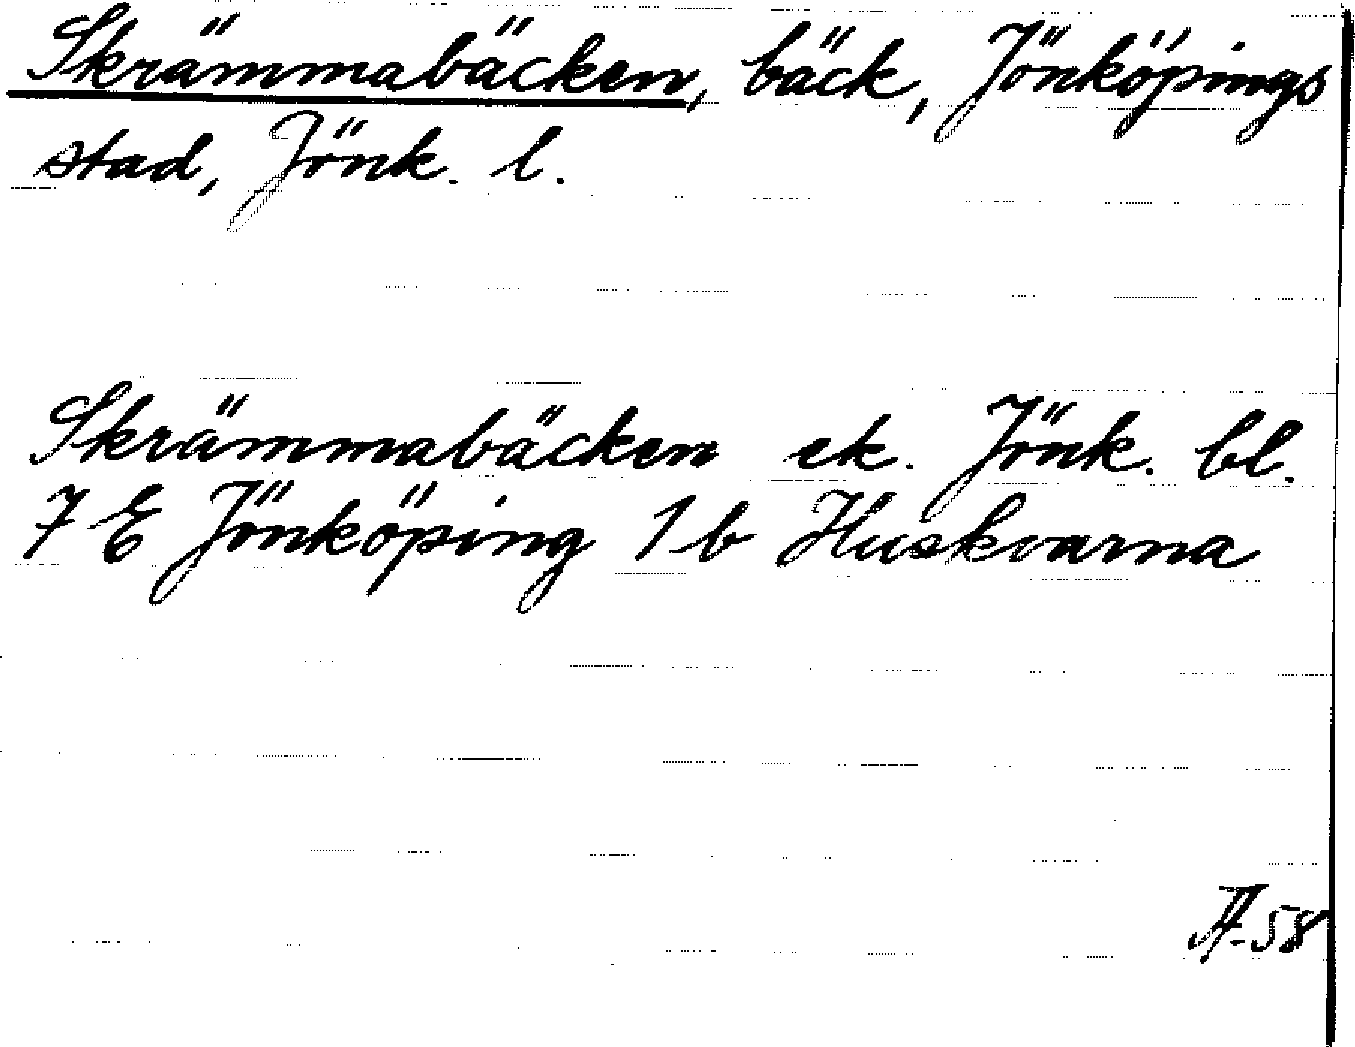 Skrämmabäcken, bäck, Jönköpings
stad, Jönk. l.
Skrämmabäcken ek. Jönk. bl.
7 E Jönköping 1 b Huskvarna
A-58